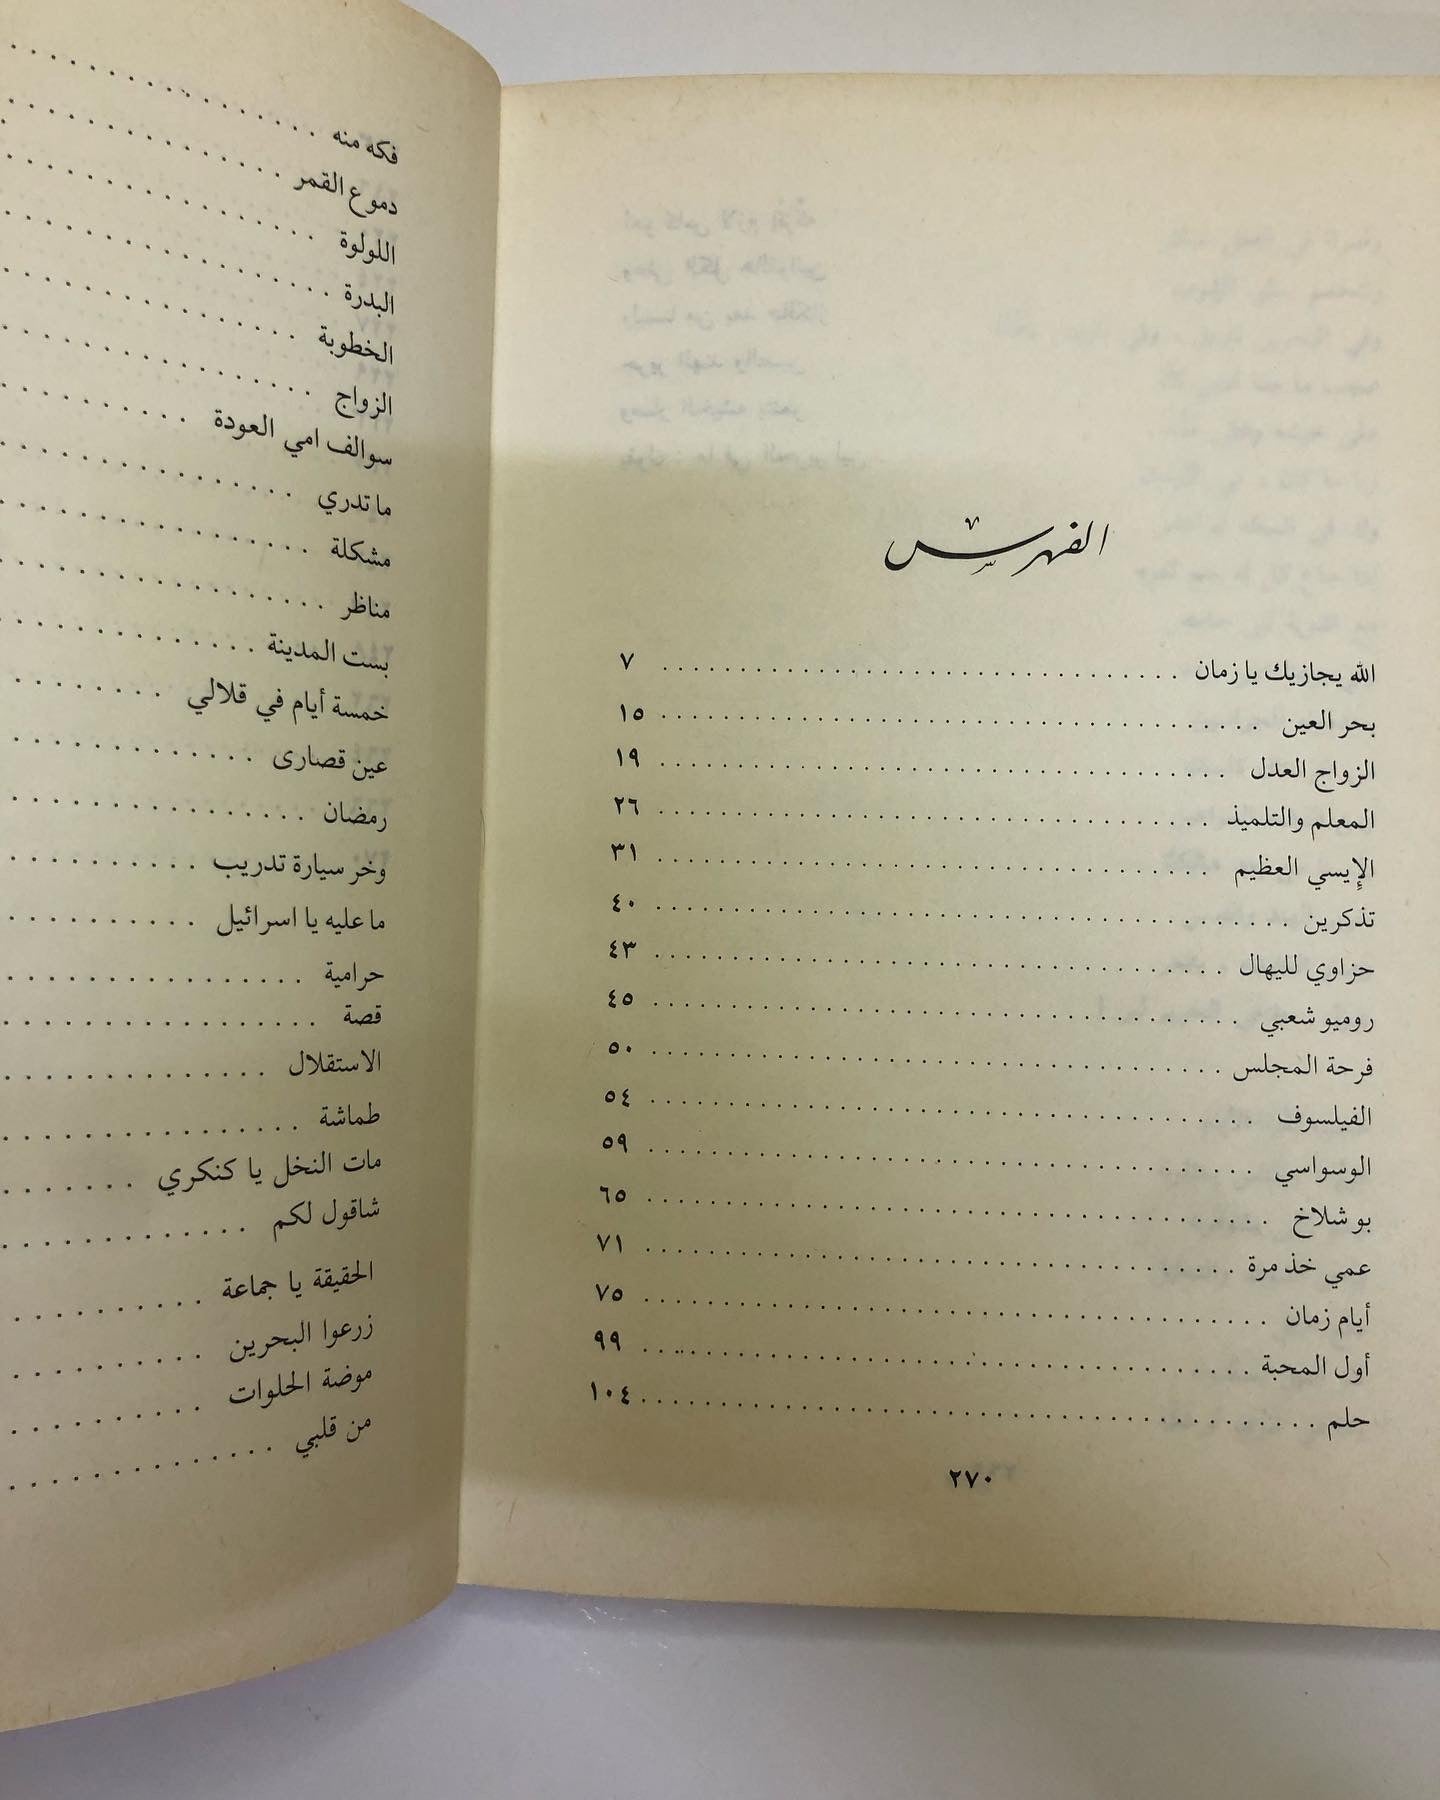 الفهرس
الله يجازيك يا زمان ٧
بحر العين ١٥
الزواج العدل ١٩
المعلم والتلميذ ٢٦
الإيسي العظيم ٣١
تذكرين ٤٠
حزاوي لليهال ٤٣
روميو شعبي ٤٥
فرحة المجلس ٥٠
الفيلسوف ٥٤
الوسواسي ٥٩
بو شلاخ ٦٥
عمي خذ مرة ٧١
أيام زمان ٧٥
أول المحبة ٩٩
حلم ١٠٤
٢٧٠
فكه منه
دموع القمر
اللولوة
البدرة
الخطوبة
الزواج
سوالف امي العودة
ما تدري
مشكلة
مناظر
بست المدينة
خمسة أيام في قلالي
عين قصارى
رمضان
وخر سيارة تدريب
ما عليه يا اسرائيل
حرامية
قصة
الاستقلال
طماشة
مات النخل يا كنكري
شاقول لكم
الحقيقة يا جماعة
زرعوا البحرين
موضة الحلوات
من قلبي